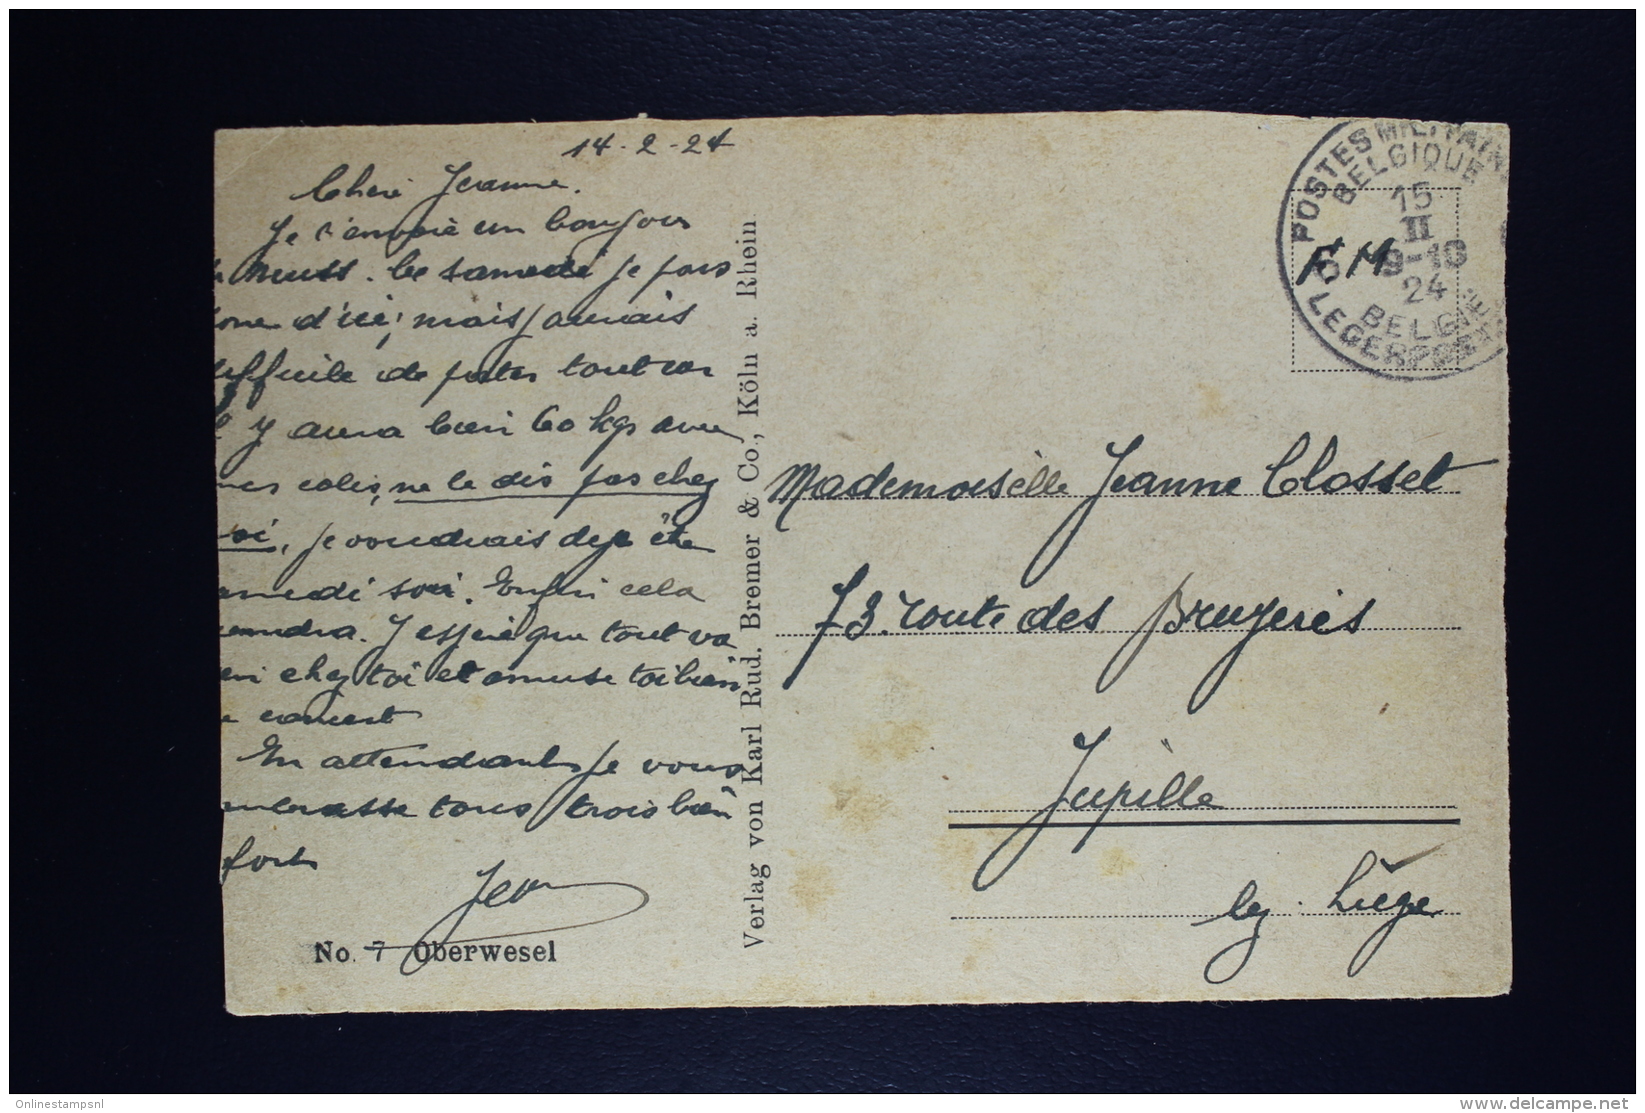 14-2-24
Chere Jeanne.
Je t'envoie un bonjour
Neuss. Ce samedi je pars
d'ici, mais j'aurais
difficile de porter tout car
il y aura bien 60 kgs avec
mes colis, ne le dis pas chez
toi, je voudrais deja être
samedi soir. Enfin cela
viendra. J'espère que tout va
bien chez toi et amuse toi bien
concert
En attendant je vous
embrasse tous trois bien
fort
No. 7 Oberwesel
Verlag von Karl Rud. Bremer & Co., Köln a. Rhein
POSTES MILITAIRES
BELGIQUE
15
II
9-10
24
BELGIE
LEGERPOSTERIJ
F M
Mademoiselle Jeanne Closset
73. route des Bruyeres
Jupille
lez. Liége
Onlinestampsnl
delcampe.net